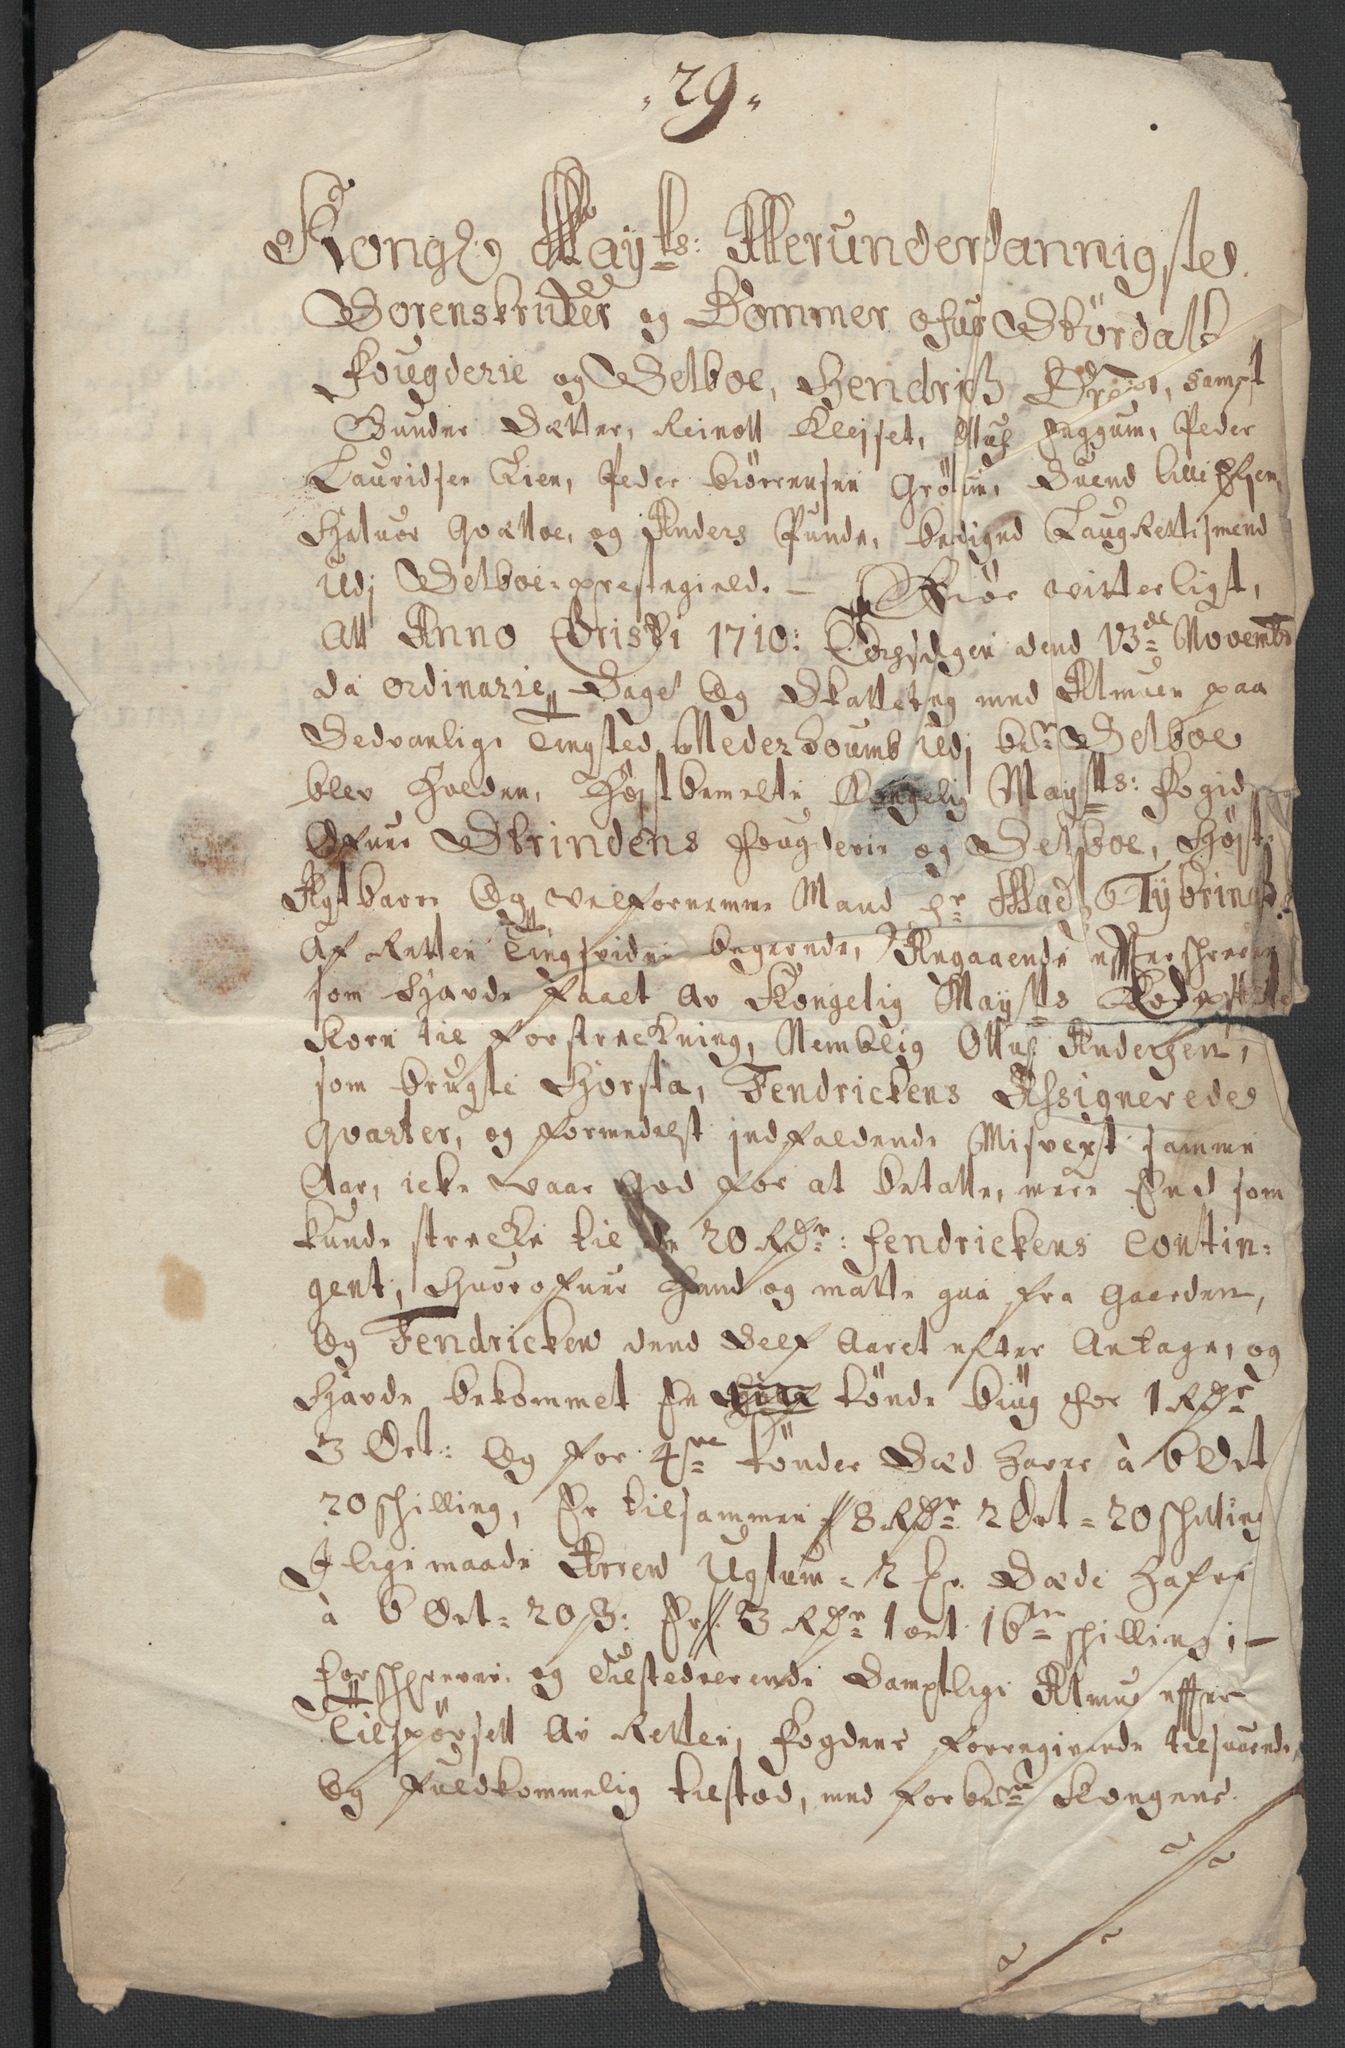 29
Kongl Mayts: Allerunderdannigste
Sorenskrifver og Dommer ofuer Stördals
Fougderie og Selboe, Hendrich, sampt
Gunder Sætter, Reinolt Kleiset, Oluf, Peder
Lauridsen Lien, Peder Biörensen Gröttum, Suend
Haluor Qvælloe, og Anders Punde, bediged Laug Rettismend
Udj Selboe præstegield. Giör vitterligt,
att Anno Cristi 1710: Torsdagen dend 13de Novembr
da ordinarie Sage og Skatteting med Almuen paa
Sedvanlige Tingsted Nederhoumb udj bete Selboe
blev holden, Höystbemelte Kongelig Maysts: Fogid
ofuer Strindens Fougderie og Selboe, Höyst
Agtbare og velfornemme Mand hr Mads Tybring
af Retten Tingsvidne begierende, Angaaende effterschrevne
som hafde faaet av Kongelig Maysts
Korn til forstreckning, Nemblig Oluf Andersen,
som brugte Horsta, Fendrickens Assignerede
qvarter, og formedelst indfaldende Misvext samme
Aar, icke vaar god for at betalle, mere End som
kunde strecke til de 20 Rdr: fendrickens contin-
gent, Huorofuer hand og matte gaa fra Gaarden,
og Fendricken dend Self Aaret efter Antage, og
hafde bekommet En tönde biug for 1 Rdr
3 Ort: og for 4re tönder Sæd Havre à 6 Ort
20 schilling, Er tilsammen 8 Rdr 2 Ort - 20 schilling
J lige maade Arren Uglum - 2 Sæde Hafre
à 6 Ort - 20 s: Er 3 Rdr 1 ort 16ten schilling;
forschrevne og tilstedverende Samptlige Almue effter
Tilspörsell av Retten, Fogdens forregivende tilsvarende,
og fuldkommelig tilstod, med forbete Kongens